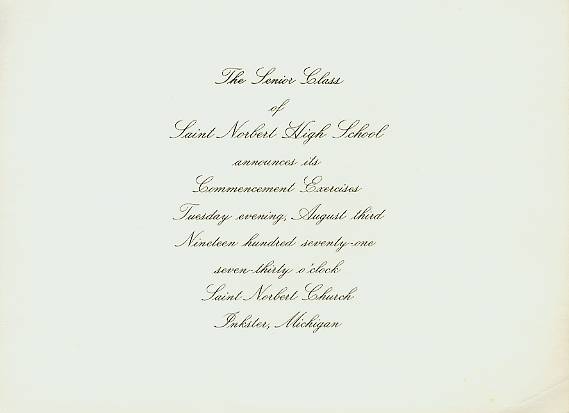 The Senior Class
of
Saint Norbert High School
announces its
Commencement Exercises
Tuesday evening, August third
Nineteen hundred seventy-one
seven-thirty o'clock
Saint Norbert Church
Inkster, Michigan